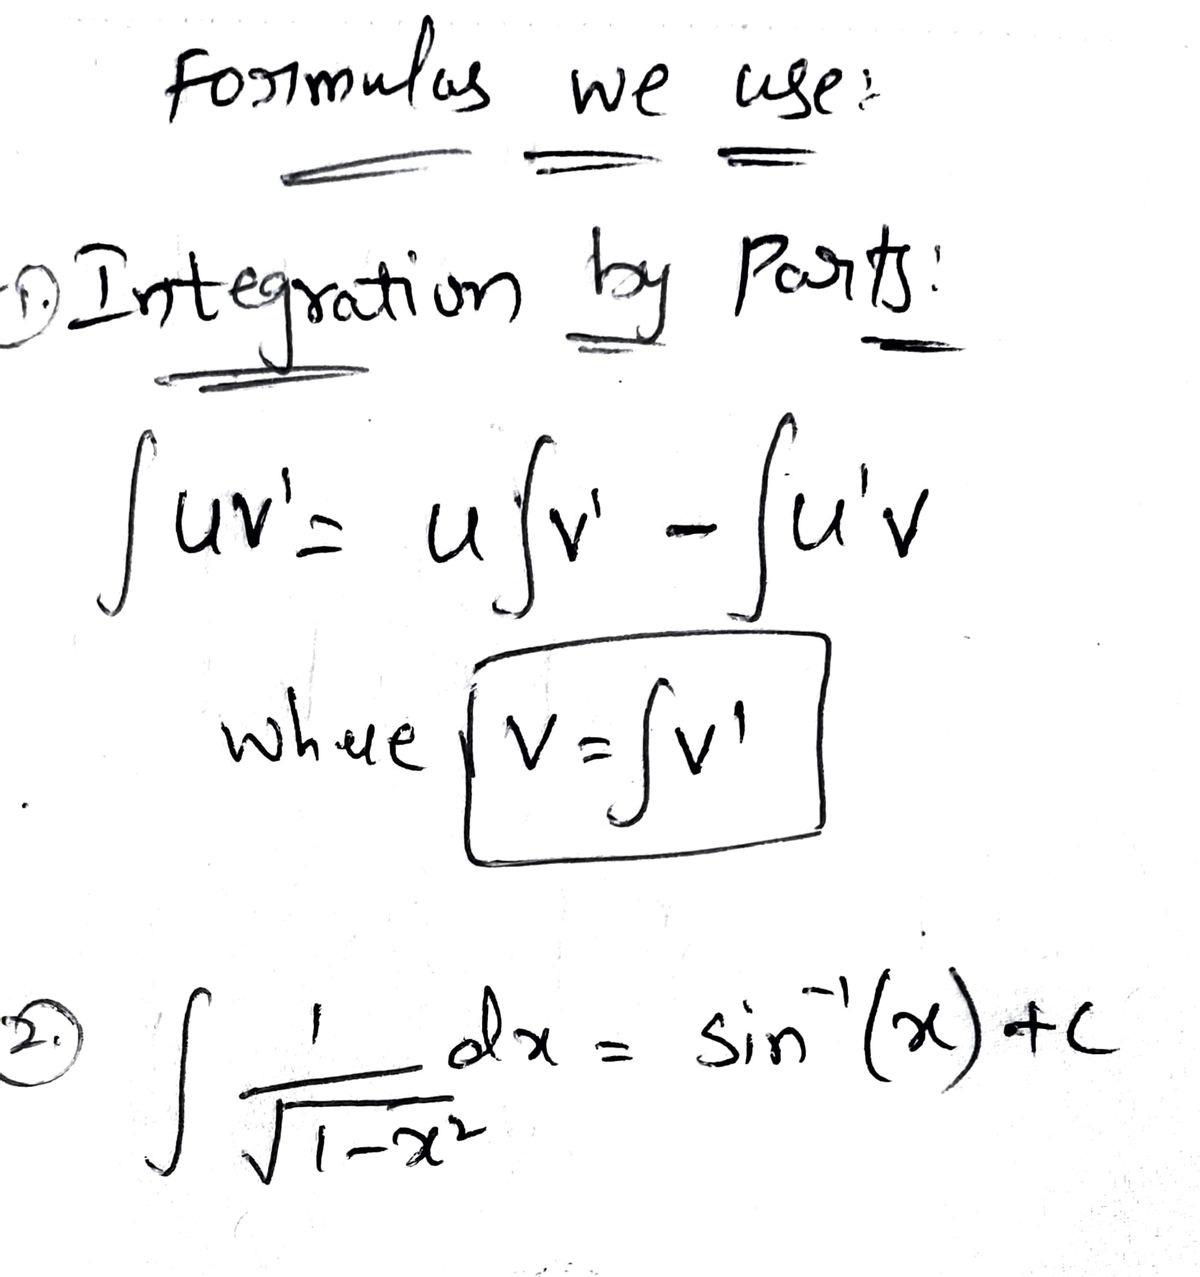 Formulas we use:
1. Integration by Parts:
∫uv' = u∫v' - ∫u'v
where v = ∫v'
2. ∫ 1/√(1-x²) dx = sin⁻¹(x) + c